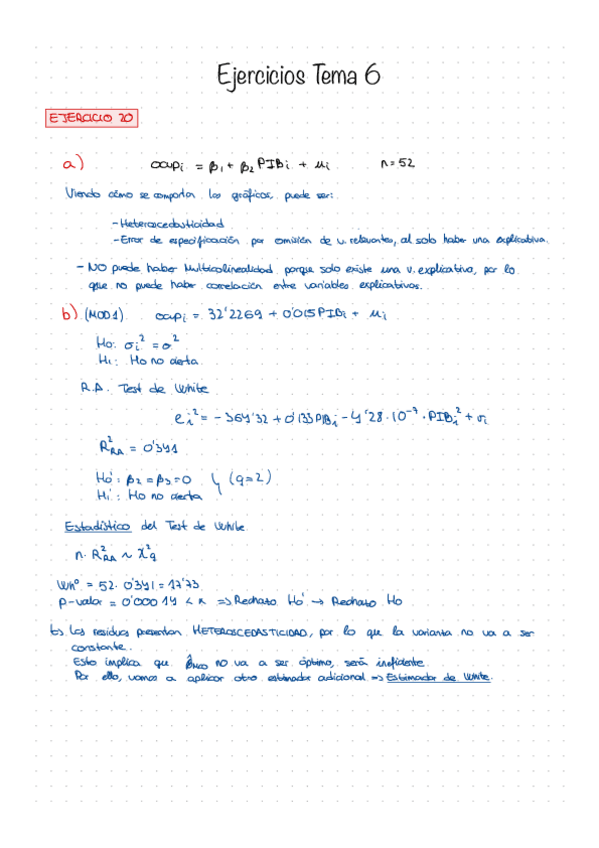 Ejercicios Tema 6
EJERCICIO 20
a) ocupi = β1 + β2 PIBi + ui n=52
Viendo cómo se comportan los gráficos, puede ser:
- Heteroscedasticidad
- Error de especificación por omisión de v. relevantes, al solo haber una explicativa.
- NO puede haber Multicolinealidad porque solo existe una v. explicativa, por lo
que no puede haber correlación entre variables explicativas.
b) (MOD1) ocupi = 32'2269 + 0'015 PIBi + ui
Ho: σi² = σ²
H1: Ho no cierta
R.A. Test de White
ei² = -364'32 + 0'133 PIBi - 4'28·10⁻⁷ · PIBi² + vi
R²RA = 0'341
Ho': β2 = β3 = 0 (q=2)
H1': Ho no cierta
Estadístico del Test de White
n · R²RA ~ χ²q
Whº = 52 · 0'341 = 17'73
p-valor = 0'00014 < α => Rechazo Ho' → Rechazo Ho
↳ Los residuos presentan HETEROSCEDASTICIDAD, por lo que la varianza no va a ser
constante.
Esto implica que β̂MCO no va a ser óptimo, será ineficiente.
Por ello, vamos a aplicar otro estimador adicional => Estimador de White.